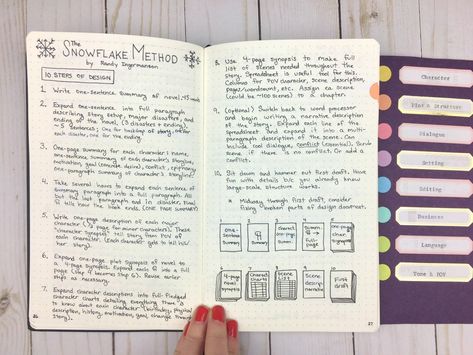 The
SNOWFLAKE METHOD
by Randy Ingermanson
10 STEPS OF DESIGN
1. Write one-sentence summary of novel,
2. Expand one-sentence into full paragraph
describing story setup, major disasters, and
ending of the novel. (3 disasters + ending)
~5 sentences: One for backup of story, one for
each disaster, one for the ending.
3. One-page summary for each character's name,
one-sentence summary of each character's storyline,
motivation, goal (concrete desire), conflict, epiphany,
one-paragraph summary of character's storyline.
4. Take several hours to expand each sentence of
summary paragraph into a full paragraph. All
but the last paragraph end in disaster, final
'll tell how the novel ends. (ONE page summary)
5. Write one-page description of each major
character (1/2 page for minor characters). These
"character synopses" tell story from POV of
each character. (Each character gets to tell his/
her story).
6. Expand one-page plot synopsis of novel to
a 4-page synopsis. Expand each ¶ into a full
page (the 4 learned in step 6). Revise earlier
steps as necessary.
7. Expand character descriptions into full-fledged
character charts detailing everything there is
to know about each character (birthday, physical
description, history, motivation, goal, change through
story).
26
8. Use 4-page synopsis to make full
list of scenes needed throughout the
story. Spreadsheet is useful tool for this.
Columns for POV character, scene description,
pages/wordcount, etc. Assign ea scene
(could be ~100 scenes) to chapter.
9. (optional) Switch back to word processor
and begin writing a narrative description
of the story. Expand each line of the
spreadsheet and expand it into a multi-
paragraph description of the scene. Can
include cool dialogue, conflict (essential). Scrub
scene if there is no conflict. Or add a
conflict.
10. Sit down and hammer out first draft. Have
fun with details b/c you already know
large-scale structure works.
* Midway through first draft, consider
fixing broken parts of design document.
one-sentence summary
¶ summary
character one-page summ.
summ ¶ → full-page
one-page char synopsis
4-page novel synopsis
Character Charts
Scene List
Scene description narrative
First draft
27
Character
Plot & Structure
Dialogue
Setting
Editing
Business
Language
Tone & POV